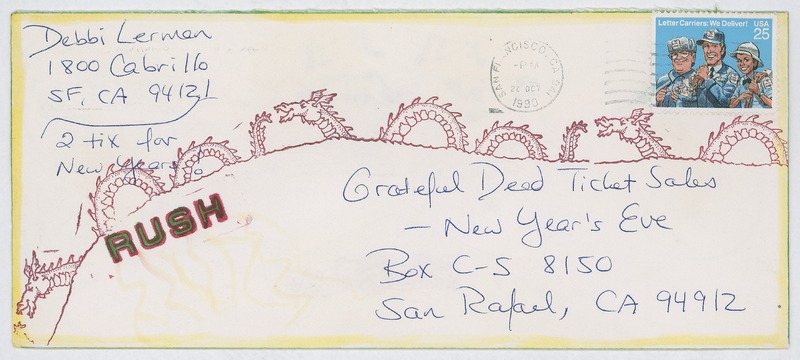 Debbi Lerman
1800 Cabrillo
SF, CA 94121
2 tix for
New Years!
Letter Carriers: We Deliver! USA
25
SAN FRANCISCO, CA 941
-PM
26 OCT
1990
RUSH
Grateful Dead Ticket Sales
- New Year's Eve
Box C-S 8150
San Rafael, CA 94912